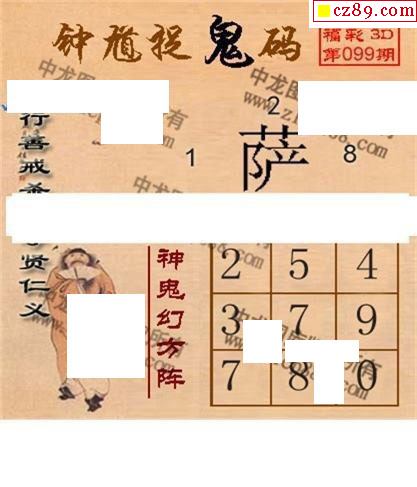 cz89.com
钟馗捉鬼码
福彩3D
第099期
2
1
萨
8
行善戒
贤仁义
神鬼幻方阵
2 5 4
3 7 9
7 8 0